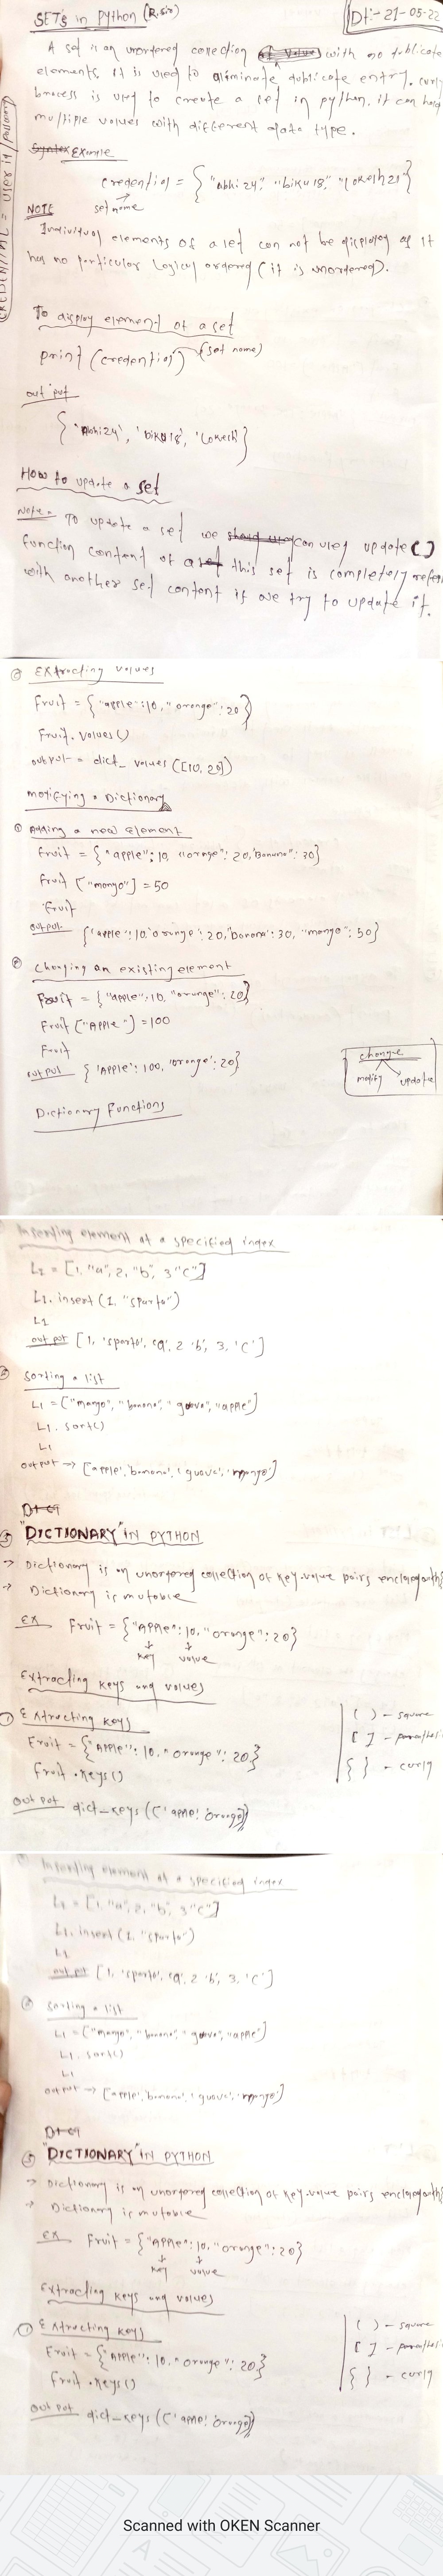 SET's in python (R.sir)
Dt:- 21-05-22
A set is an unordered collection with no dublicate
elements. it is used to aliminate dublicate entry. curly
braces is used to create a set in python. it can hold
multiple values with different data type.
Syntex Example
credential = {"abhi24", "biku18", "lokesh21"}
set name
NOTE
Individual elements of a set can not be displayed as it
has no particular logical ordered (it is unordered).
To display element of a set
print (credential) (set name)
out put
{'Abhi24', 'biku18', 'Lokesh'}
How to update a set
Note - To update a set we can used update ()
function content of a set this set is completely
with another set content if we try to update it.
② Extracting values
Fruit = {"apple":10, "orange":20}
Fruit. values()
output = dict_ values ([10, 20])
modifying a Dictionary
① Adding a new element
Fruit = {"apple":10, "orange": 20, "Banana": 30}
Fruit ["mango"] = 50
Fruit
output {'apple':10, 'orange': 20, 'banana': 30, "mango": 50}
② Changing an existing element
Fruit = {"apple":10, "orange":20}
Fruit ["Apple"] = 100
Fruit
output {'Apple': 100, 'orange': 20}
change
modify update
Dictionary Functions
Inserting element at a specified index
L1 = [1, "a", 2, "b", 3 "c"]
L1. insert (1, "sparta")
L1
out put [1, 'sparta', 'a', 2 'b', 3, 'c']
Sorting a list
L1 = ["mango", "banana", "guava", "apple"]
L1. sort()
L1
output → [apple', 'banana', 'guava', 'mango']
"DICTIONARY" IN PYTHON
→ Dictionary is an unordered collection of key-value pairs
→ Dictionary is mutable
EX Fruit = {"Apple":10, "orange":20}
key value
Extracting keys and values
① Extracting keys
Fruit = {"Apple": 10, "orange": 20}
Fruit .keys()
out put dict_keys (['apple', 'orange'])
( ) - square
[ ] -
{ } - curly
Inserting element at a specified index
L1 = [1, "a", 2, "b", 3 "c"]
L1. insert (1, "sparta")
L1
out put [1, 'sparta', 'a', 2 'b', 3, 'c']
Sorting a list
L1 = ["mango", "banana", "guava", "apple"]
L1. sort()
L1
output → [apple', 'banana', 'guava', 'mango']
"DICTIONARY" IN PYTHON
→ Dictionary is an unordered collection of key-value pairs
→ Dictionary is mutable
EX Fruit = {"Apple":10, "orange":20}
key value
Extracting keys and values
① Extracting keys
Fruit = {"Apple": 10, "orange": 20}
Fruit .keys()
out put dict_keys (['apple', 'orange'])
( ) - square
[ ] -
{ } - curly
Scanned with OKEN Scanner